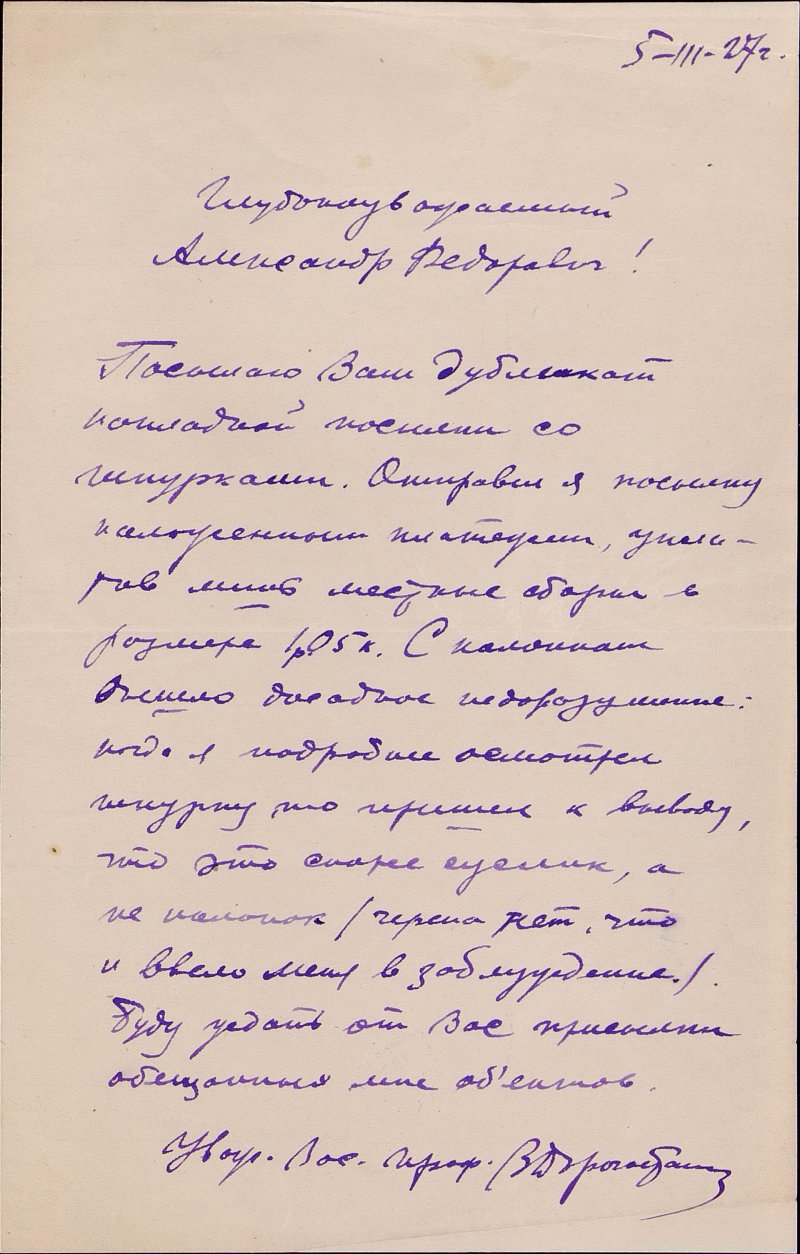 5-III-27г.
Глубокоуважаемый
Александр Федорович!
Посылаю Вам дубликат
накладной посылки со
шкурками. Отправил я посылку
наложенным платежем, упла-
тив лишь местные сборы в
размере 1р.05к. С колонком
вышло досадное недоразумение:
когда я подробнее осмотрел
шкурку то пришел к выводу,
что это скорее суслик, а
не колонок /черепа нет, что
и ввело меня в заблуждение./.
Буду ждать от Вас присылки
обещанных мне об'ектов.
Уваж. Вас. проф. ВДорогостайский